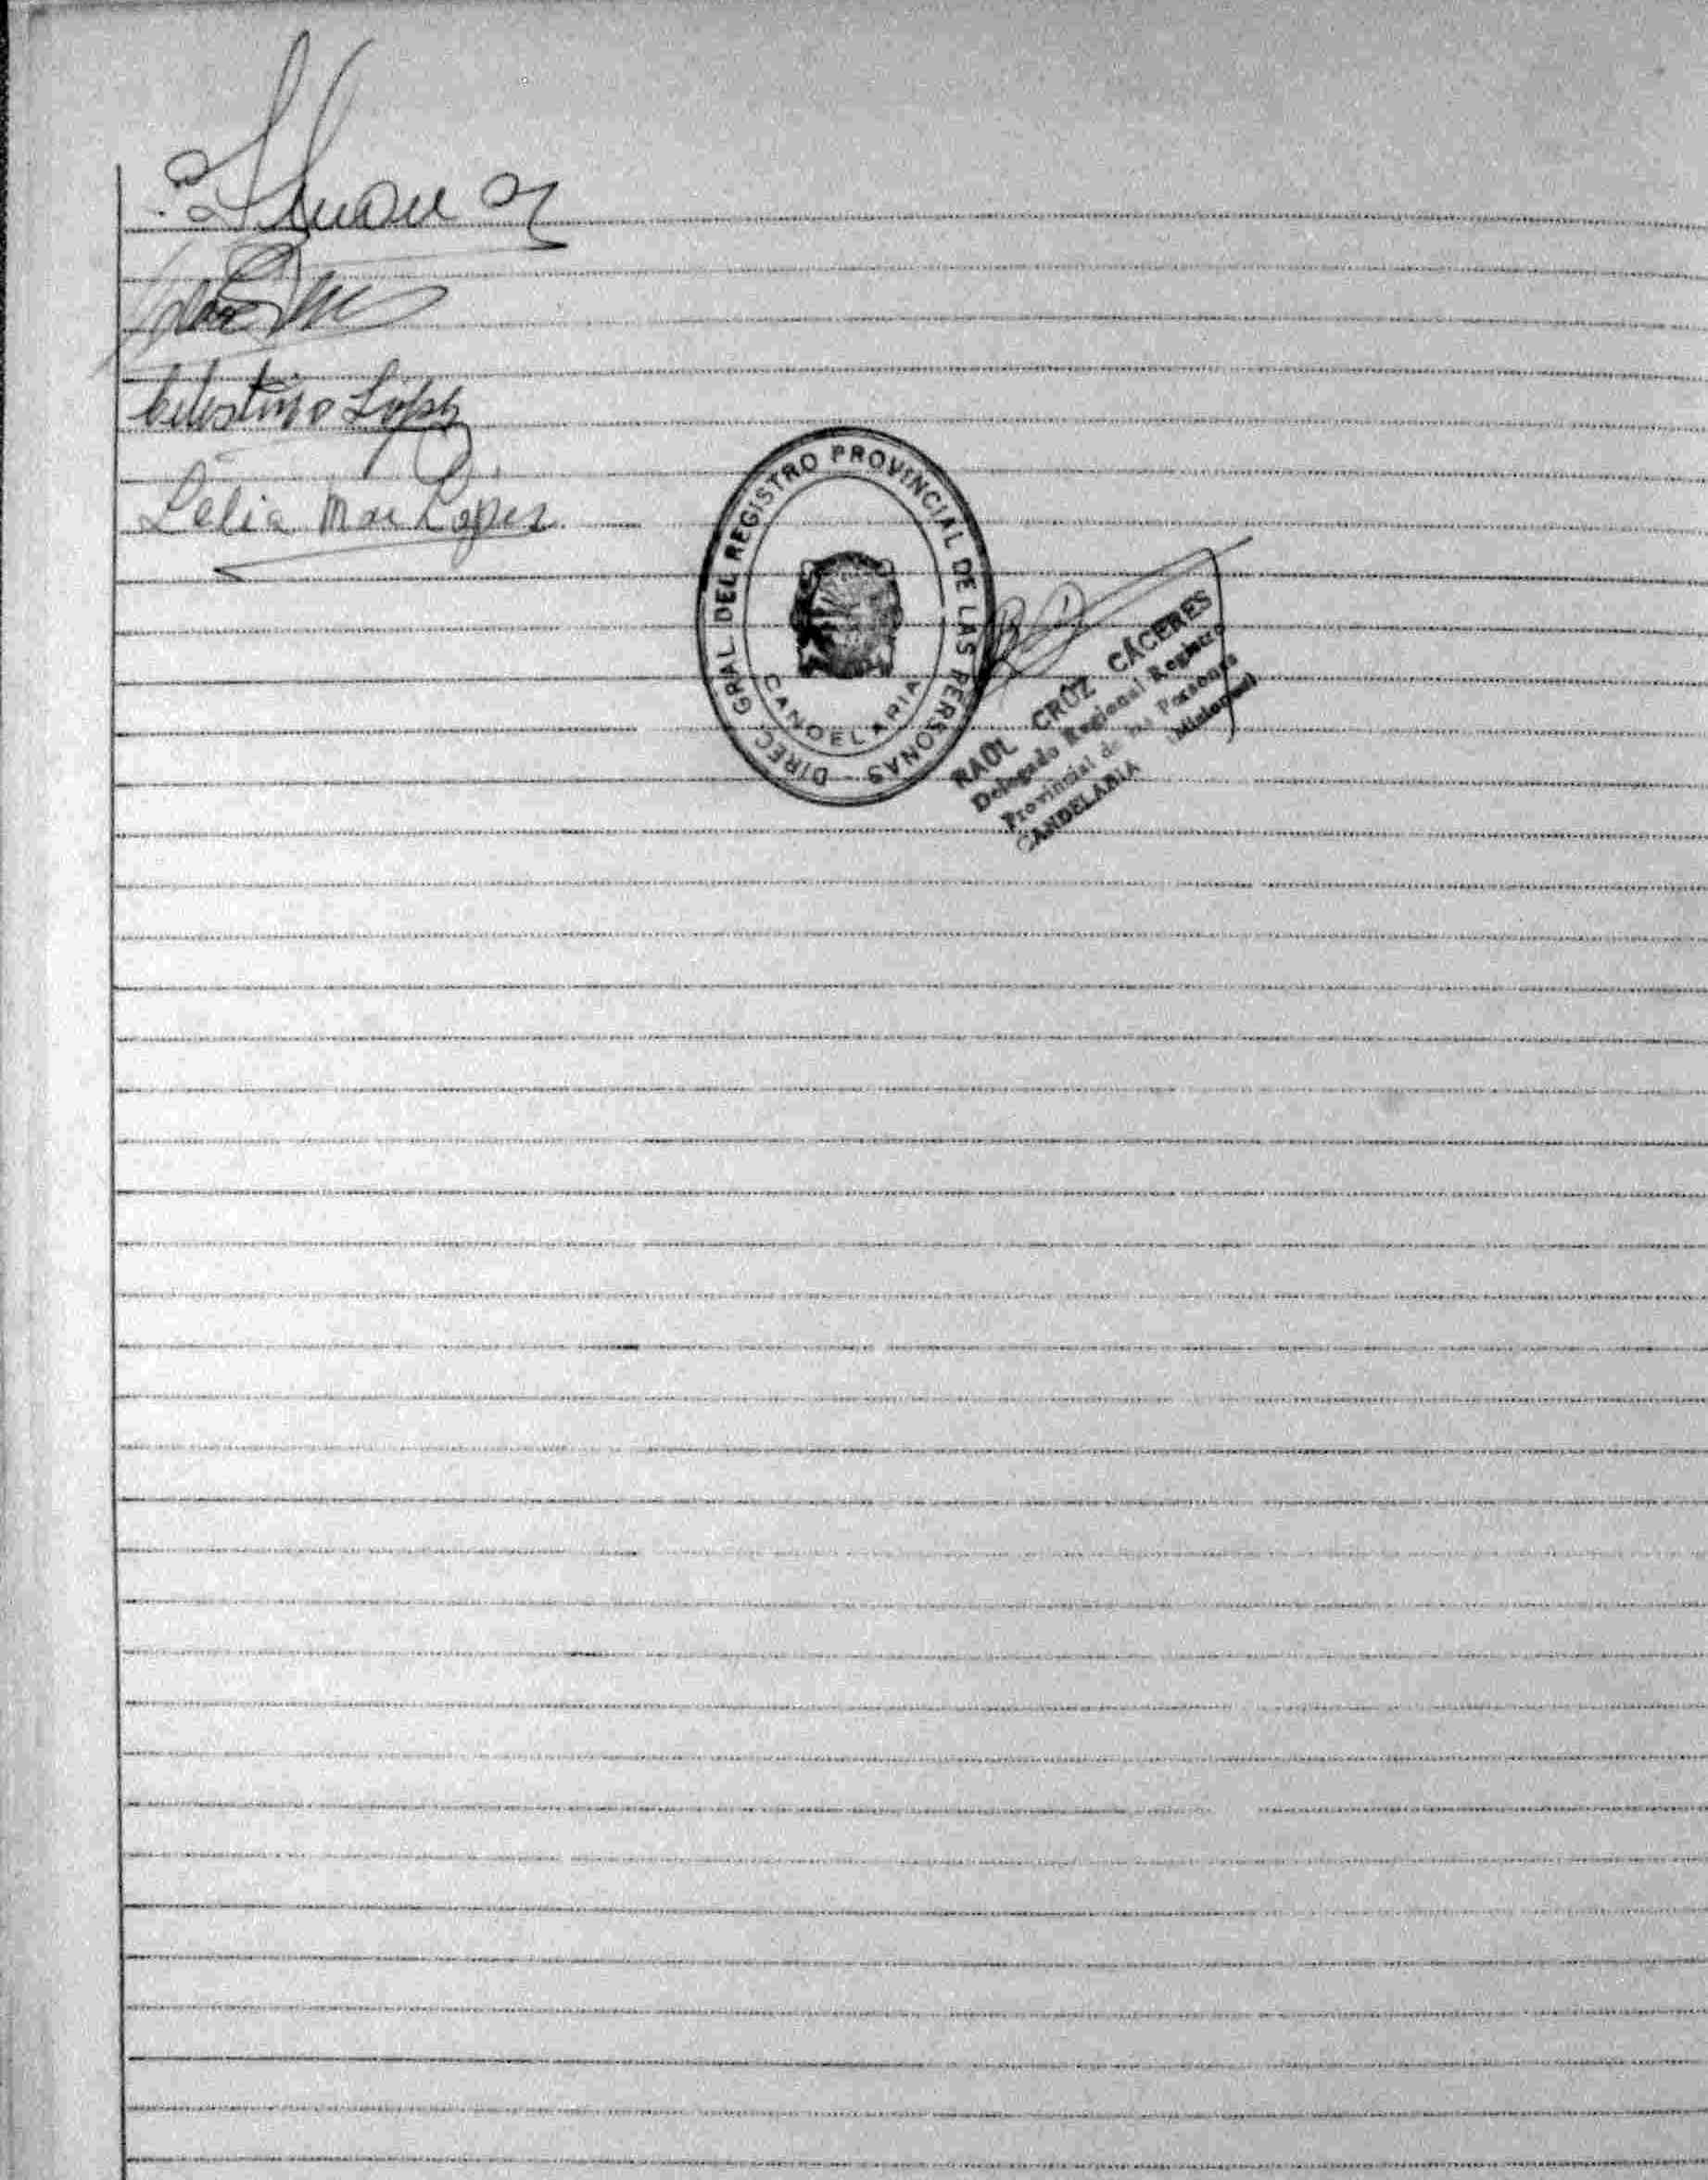 Celestino López
Celia Mar López
DIREC. GRAL DEL REGISTRO PROVINCIAL DE LAS PERSONAS -
CANDELARIA
RAUL CRUZ CÁCERES
Delegado Regional Registro
Provincial de las Personas
CANDELARIA (Misiones)